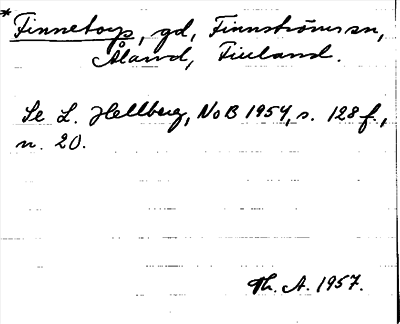 *Finneboys, gd, Finnströms sn,
Åland, Finland.
Se L. Hellberg, NoB 1954, s. 128 f.,
n. 20.
Th. A. 1957.